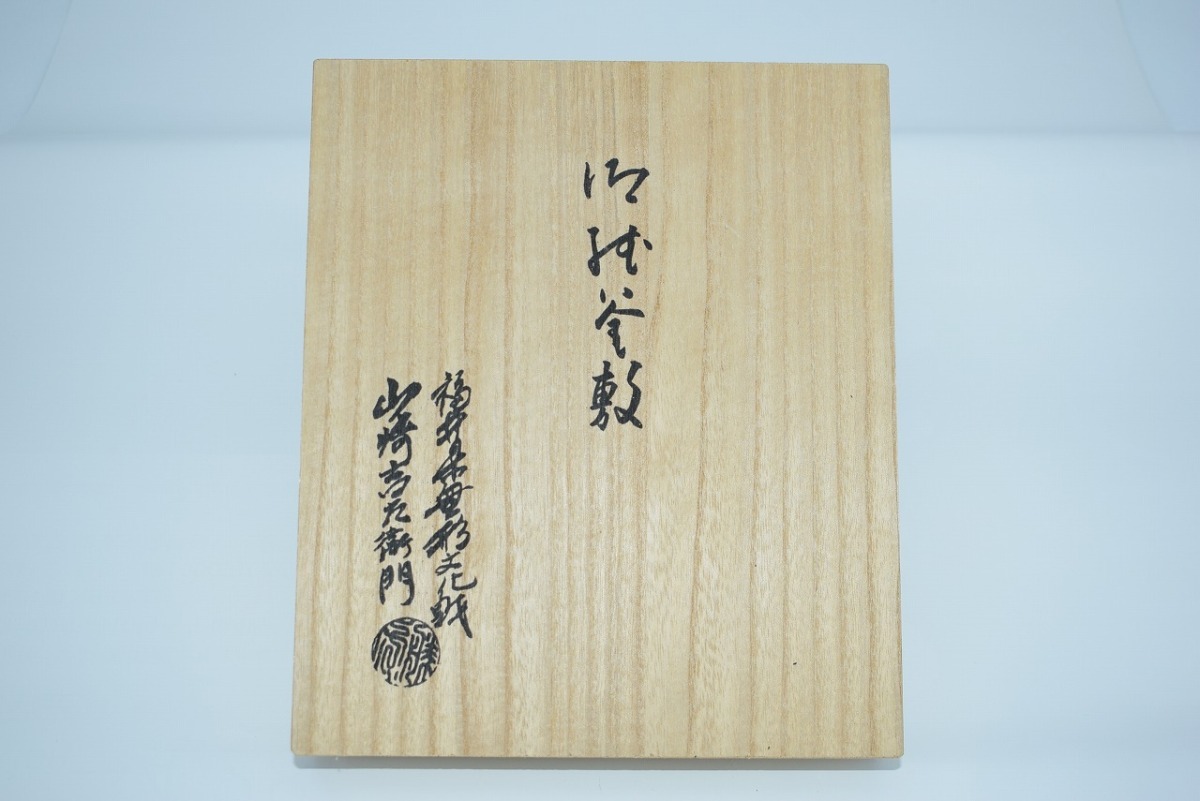 御紙釜敷
福井県無形文化財
山崎吉左衛門